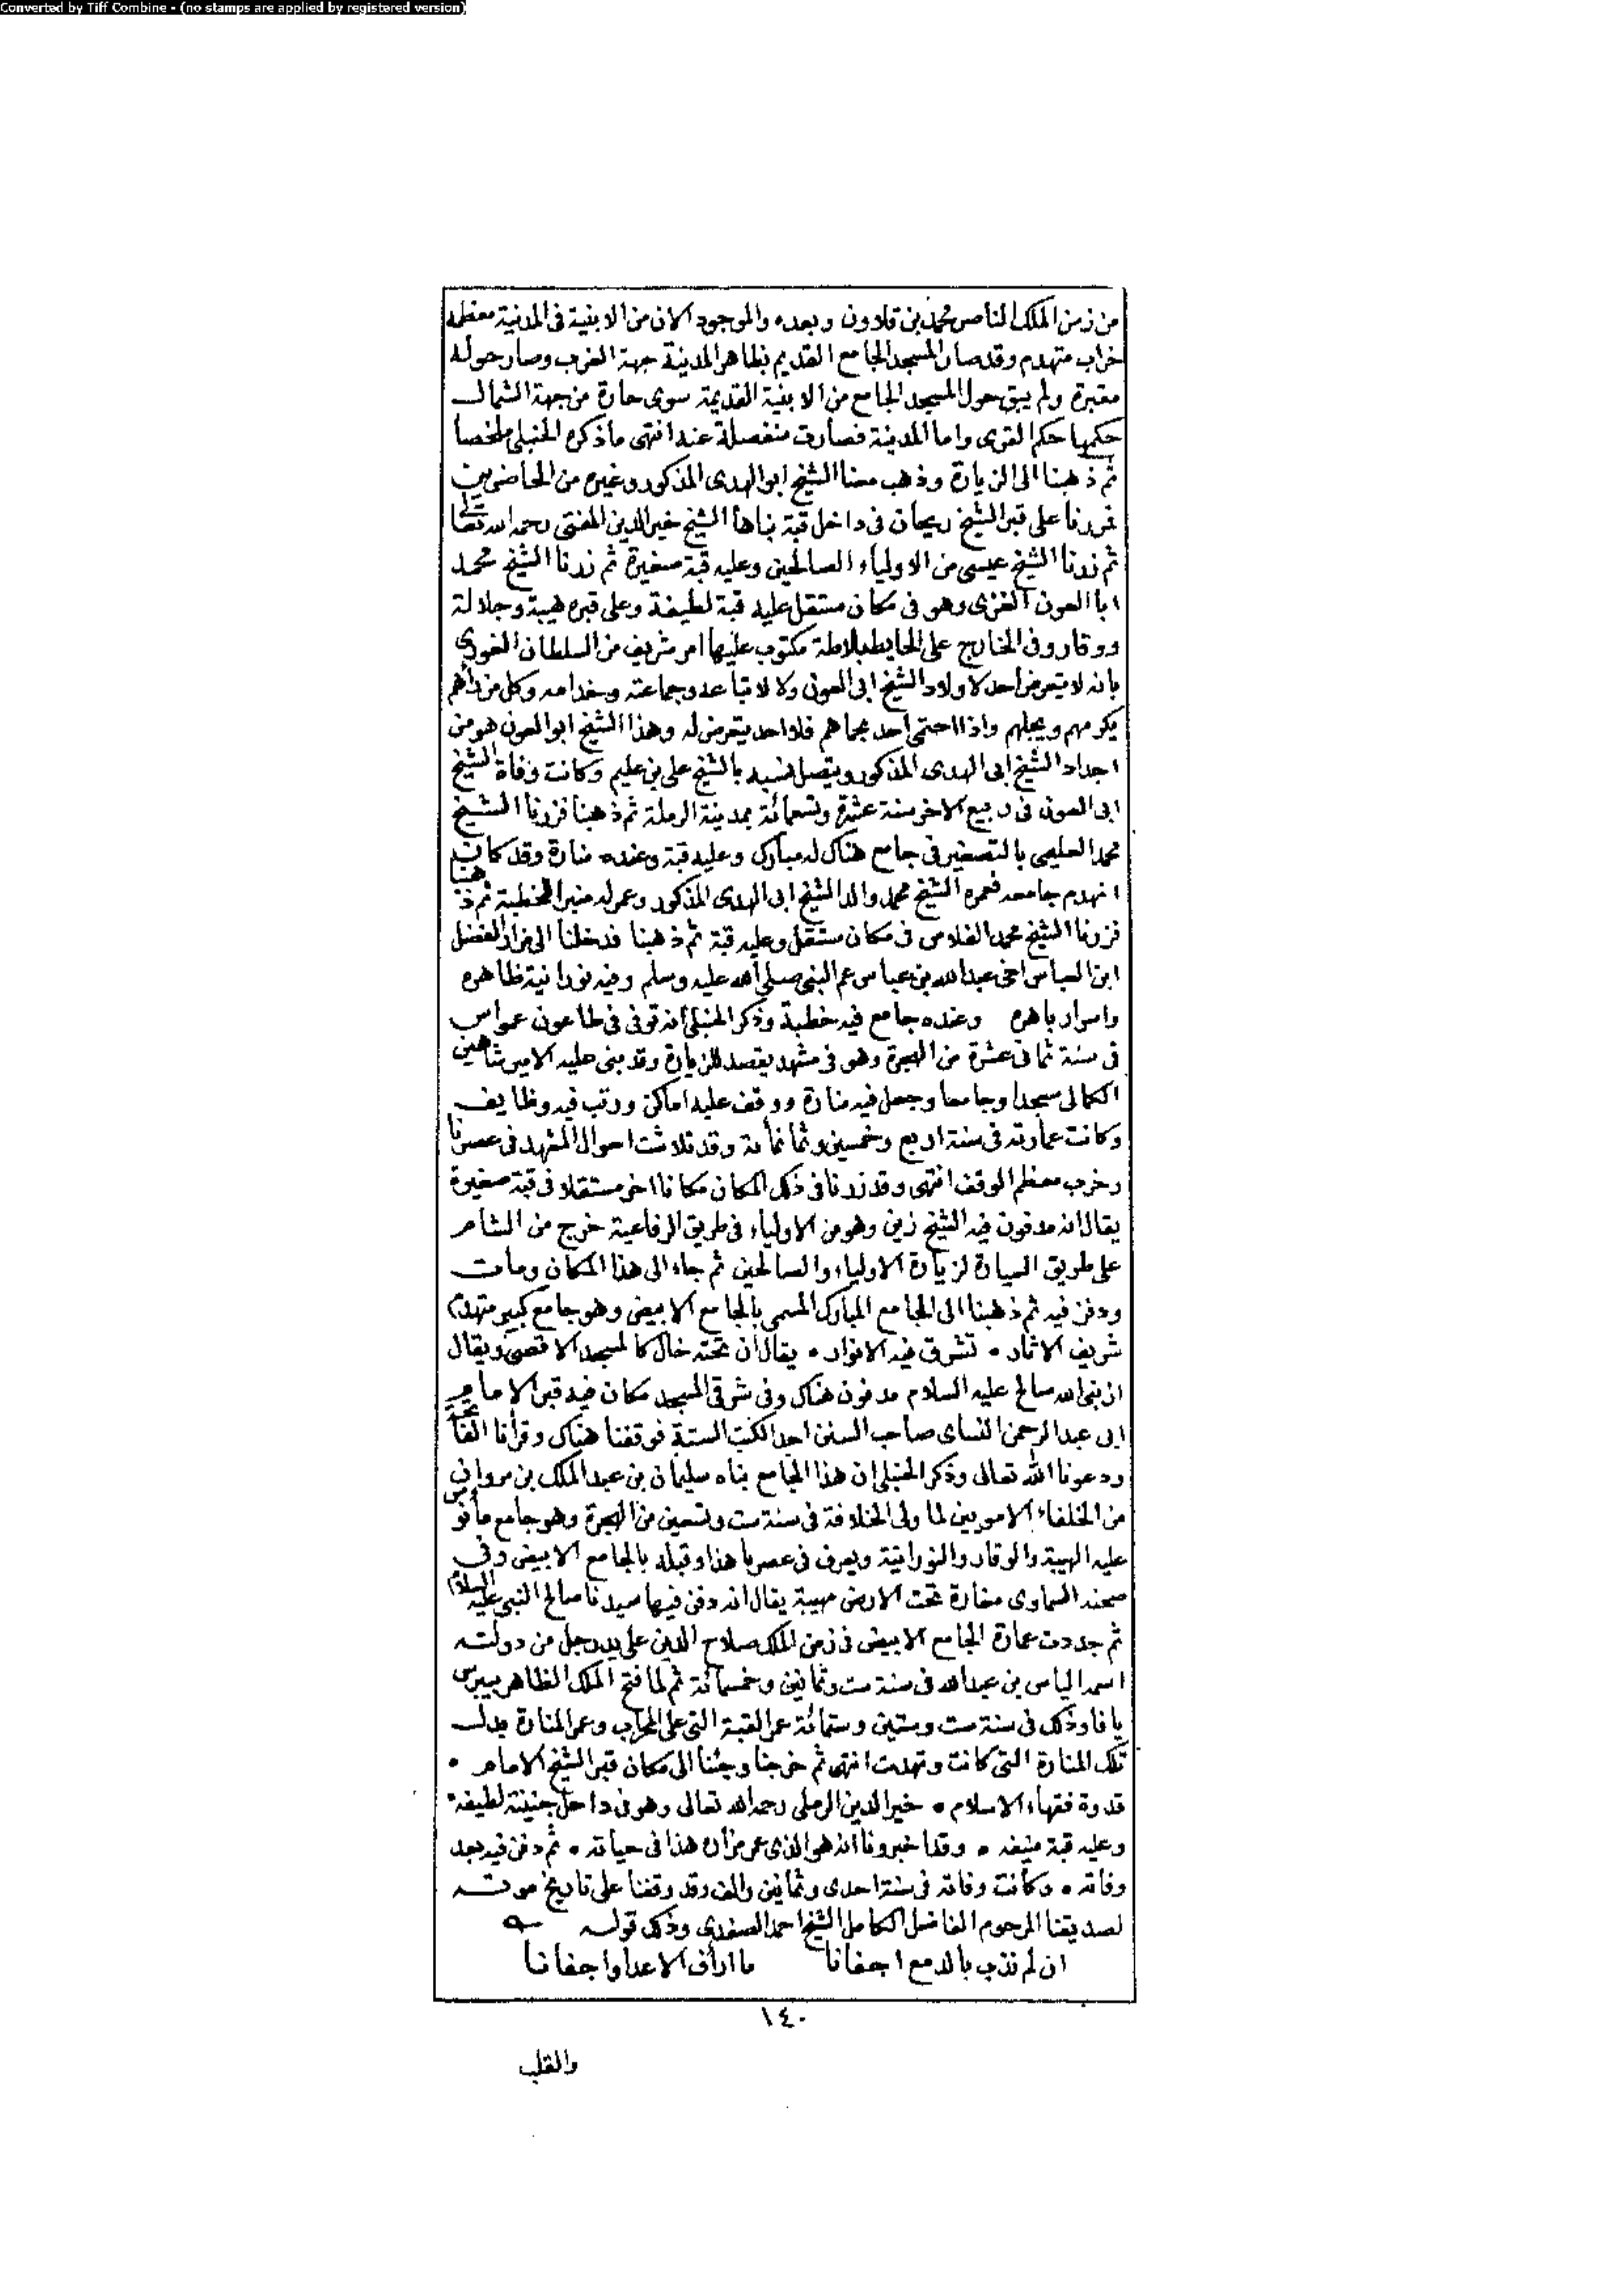 Converted by Tiff Combine - (no stamps are applied by registered version)
من زمن الملك الناصر محمد بن قلاوون وبعده والموجود الان من الابنية فى المدينة معظمه
خراب متهدم وقد صار المسجد الجامع القديم بظاهر المدينة جهة الغرب وصار حوله
مقبرة ولم يبق حول المسجد الجامع من الابنية القديمة سوى حارة من جهة الشمال
حكمها حكم القرى واما المدينة فصارت منفصلة عنه انتهى ما ذكره الحنبلى ملخصا
ثم ذهبنا الى الزيارة وذهب معنا الشيخ ابو الهدى المذكور وغيره من الحاضرين
فمررنا على قبر الشيخ ريحان فى داخل قبة بناها الشيخ خير الدين المفتى رحمه الله تعالى
ثم زرنا الشيخ عيسى من الاولياء الصالحين وعليه قبة صغيرة ثم زرنا الشيخ محمد
ابا العون الغزى وهو فى مكان مستقل عليه قبة لطيفة وعلى قبره هيبة وجلالة
ووقار وفى الخارج على الحايط بلاطة مكتوب عليها امر شريف من السلطان الغورى
بانه لا يتعرض احد لاولاد الشيخ ابى العون ولا لاتباعه وجماعته وخدامه وكل من راهم
يكرمهم ويجلهم واذا احتمى احد بحماهم فلا احد يتعرض له وهذا الشيخ ابو العون هو من
اجداد الشيخ ابى الهدى المذكور ويتصل نسبه بالشيخ على بن عليم وكانت وفاة الشيخ
ابى العون فى ربيع الاخر سنة عشرة وتسعمائة بمدينة الرملة ثم ذهبنا فزرنا الشيخ
محمد العليمى بالتصغير فى جامع هناك له مبارك وعليه قبة وعنده منارة وقد كان
انهدم جامعه فعمره الشيخ محمد والد الشيخ ابى الهدى المذكور وعمر له منبرا للخطبة ثم ذهبنا
فزرنا الشيخ محمد الغلاس فى مكان مستقل وعليه قبة ثم ذهبنا فدخلنا الى مزار الفضل
ابن العباس اخى عبد الله بن عباس عم النبى صلى الله عليه وسلم وفيه نورانية ظاهره
واسرار باهره وعنده جامع فيه خطبة وذكر الحنبلى انه توفى فى طاعون عمواس
فى سنة ثمانى عشرة من الهجرة وهو فى مشهد يقصد للزيارة وقد بنى عليه الامير شاهين
الكمالى مسجدا وجامعا وجعل فيه منارة ووقف عليه اماكن ورتب فيه وظايف
وكانت عمارته فى سنة اربع وخمسين وثمانمائة وقد تلاشت احوال المشهد فى عصرنا
وخرب معظم الوقف انتهى وقد زرنا فى ذلك المكان مكانا اخر مستقلا فى قبة صغيرة
يقال انه مدفون فيه الشيخ زين وهو من الاولياء فى طريق الرفاعية خرج من الشام
على طريق السياحة لزيارة الاولياء والصالحين ثم جاء الى هذا المكان ومات
ودفن فيه ثم ذهبنا الى الجامع المبارك المسمى بالجامع الابيض وهو جامع كبير متهدم
شريف الاثار • تشرق فيه الانوار • يقال ان تحته خال كالمسجد الاقصى ويقال
ان نبى الله صالح عليه السلام مدفون هناك وفى شرقى المسجد مكان فيه قبر الامام
ابى عبد الرحمن النساى صاحب السنن احد الكتب الستة فوقفنا هناك وقرأنا الفاتحة
ودعونا الله تعالى وذكر الحنبلى ان هذا الجامع بناه سليمان بن عبد الملك بن مروان
من الخلفاء الامويين لما ولى الخلافة فى سنة ست وتسعين من الهجرة وهو جامع مأنوس
عليه الهيبة والوقار والنورانية ويعرف فى عصرنا هذا وقبله بالجامع الابيض وفى
صحنه السماوى مغارة تحت الارض مهيبة يقال انه دفن فيها سيدنا صالح النبى عليه السلام
ثم جددت عمارة الجامع الابيض فى زمن الملك صلاح الدين على يد رجل من دولته
اسمه الياس بن عبد الله فى سنة ست وثمانين وخمسمائة ثم لما فتح الملك الظاهر بيبرس
يافا وذلك فى سنة ست وستين وستمائة عمر القبة التى على المحراب وعمر المنارة بدل
تلك المنارة التى كانت وتهدمت انتهى ثم خرجنا وجئنا الى مكان قبر الشيخ الامام •
قدوة فقهاء الاسلام • خير الدين الرملى رحمه الله تعالى وهو فى داخل جنينة لطيفة •
وعليه قبة منيفه • وقد اخبرونا انه هو الذى عمر مزاره هذا فى حياته • ثم دفن فيه بعد
وفاته • وكانت وفاته فى سنة احدى وثمانين والف وقد وقفنا على تاريخ موته
لصديقنا المرحوم الفاضل الكامل الشيخ احمد الصفدى وذلك قوله
ان لم نذب بالدمع اجفانا ما ارأف الاعدا واجفانا
١٤٠
والقلب